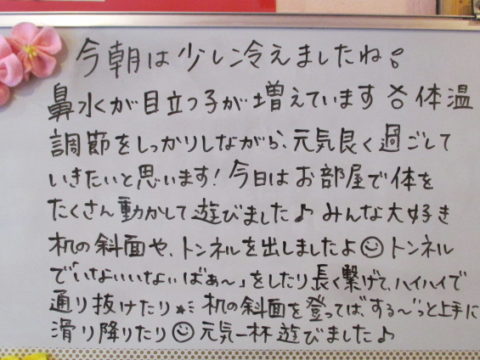 今朝は少し冷えましたね。
鼻水が目立つ子が増えています 体温
調節をしっかりしながら、元気良く過ごして
いきたいと思います!今日はお部屋で体を
たくさん動かして遊びました♪みんな大好き
机の斜面や、トンネルを出しましたよ☺トンネル
で"いないいないばぁ〜"をしたり長く繋げて、ハイハイで
通り抜けたり 机の斜面を登っては"する〜っと上手に
滑り降りたり☺元気一杯遊びました♪